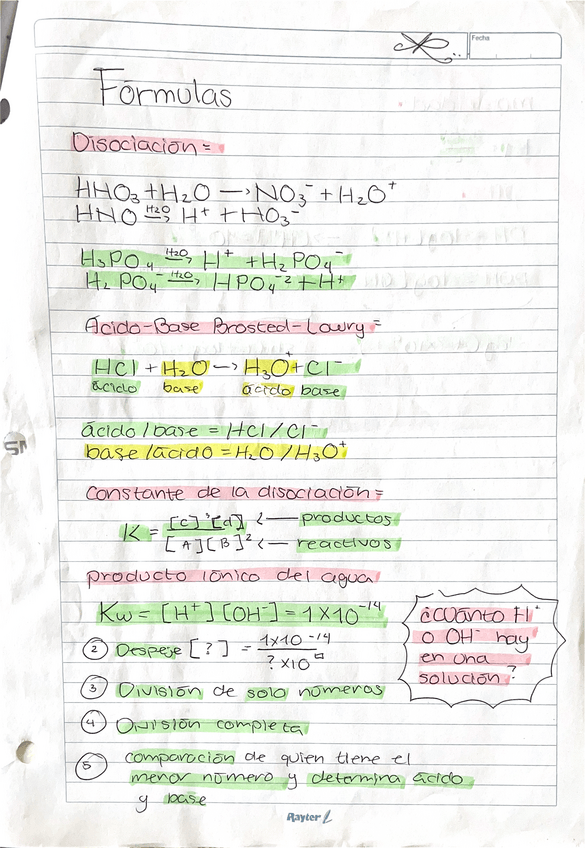 Fecha
Fórmulas
Disociación =
HHO₃ + H₂O → NO₃⁻ + H₂O⁺
HNO H₂O→ H⁺ + HO₃⁻
H₃PO₄ H₂O→ H⁺ + H₂PO₄⁻
H₂PO₄⁻ H₂O→ HPO₄⁻² + H⁺
Ácido-Base Brosted-Lowry =
HCl + H₂O → H₃O⁺ + Cl⁻
ácido base ácido base
ácido / base = HCl / Cl⁻
base / ácido = H₂O / H₃O⁺
constante de la disociación =
K = [C]³[d] ← productos
[A][B]² ← reactivos
producto iónico del agua
Kw = [H⁺][OH⁻] = 1X10⁻¹⁴
② Despeje [?] = 1x10⁻¹⁴
? x10□
③ División de solo números
④ División completa
⑤ comparación de quien tiene el
menor número y determina ácido
y base
¿Cuánto H⁺
o OH⁻ hay
en una
solución?
Rayter